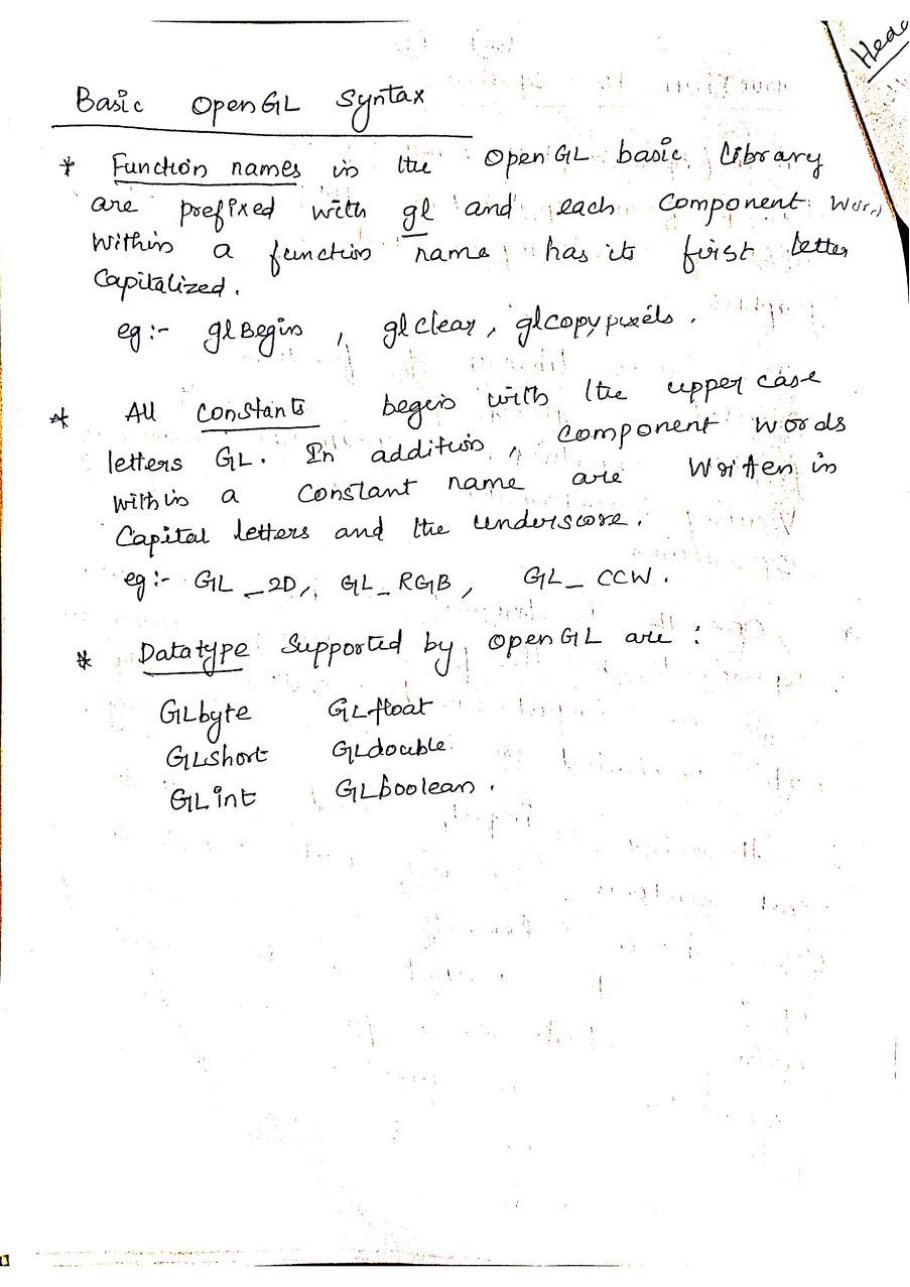 Basic OpenGL Syntax
* Function names in the OpenGL basic Library
are prefixed with gl and each component word
within a function name has its first letter
Capitalized.
eg:- glBegin , glclear, glcopypixels.
* All constants begin with the upper case
letters GL. In addition, component words
within a constant name are written in
Capital letters and the underscore.
eg:- GL_2D, GL_RGB, GL_CCW.
* Datatype Supported by OpenGL are :
GLbyte GLfloat
GLshort GLdouble
GLint GLboolean.